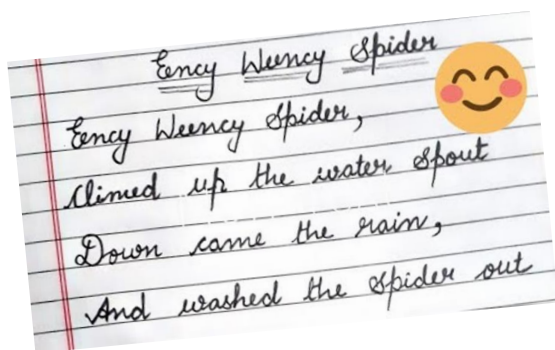 Eency Weency Spider
Eency Weency Spider,
Climed up the water spout
Down came the rain,
And washed the spider out